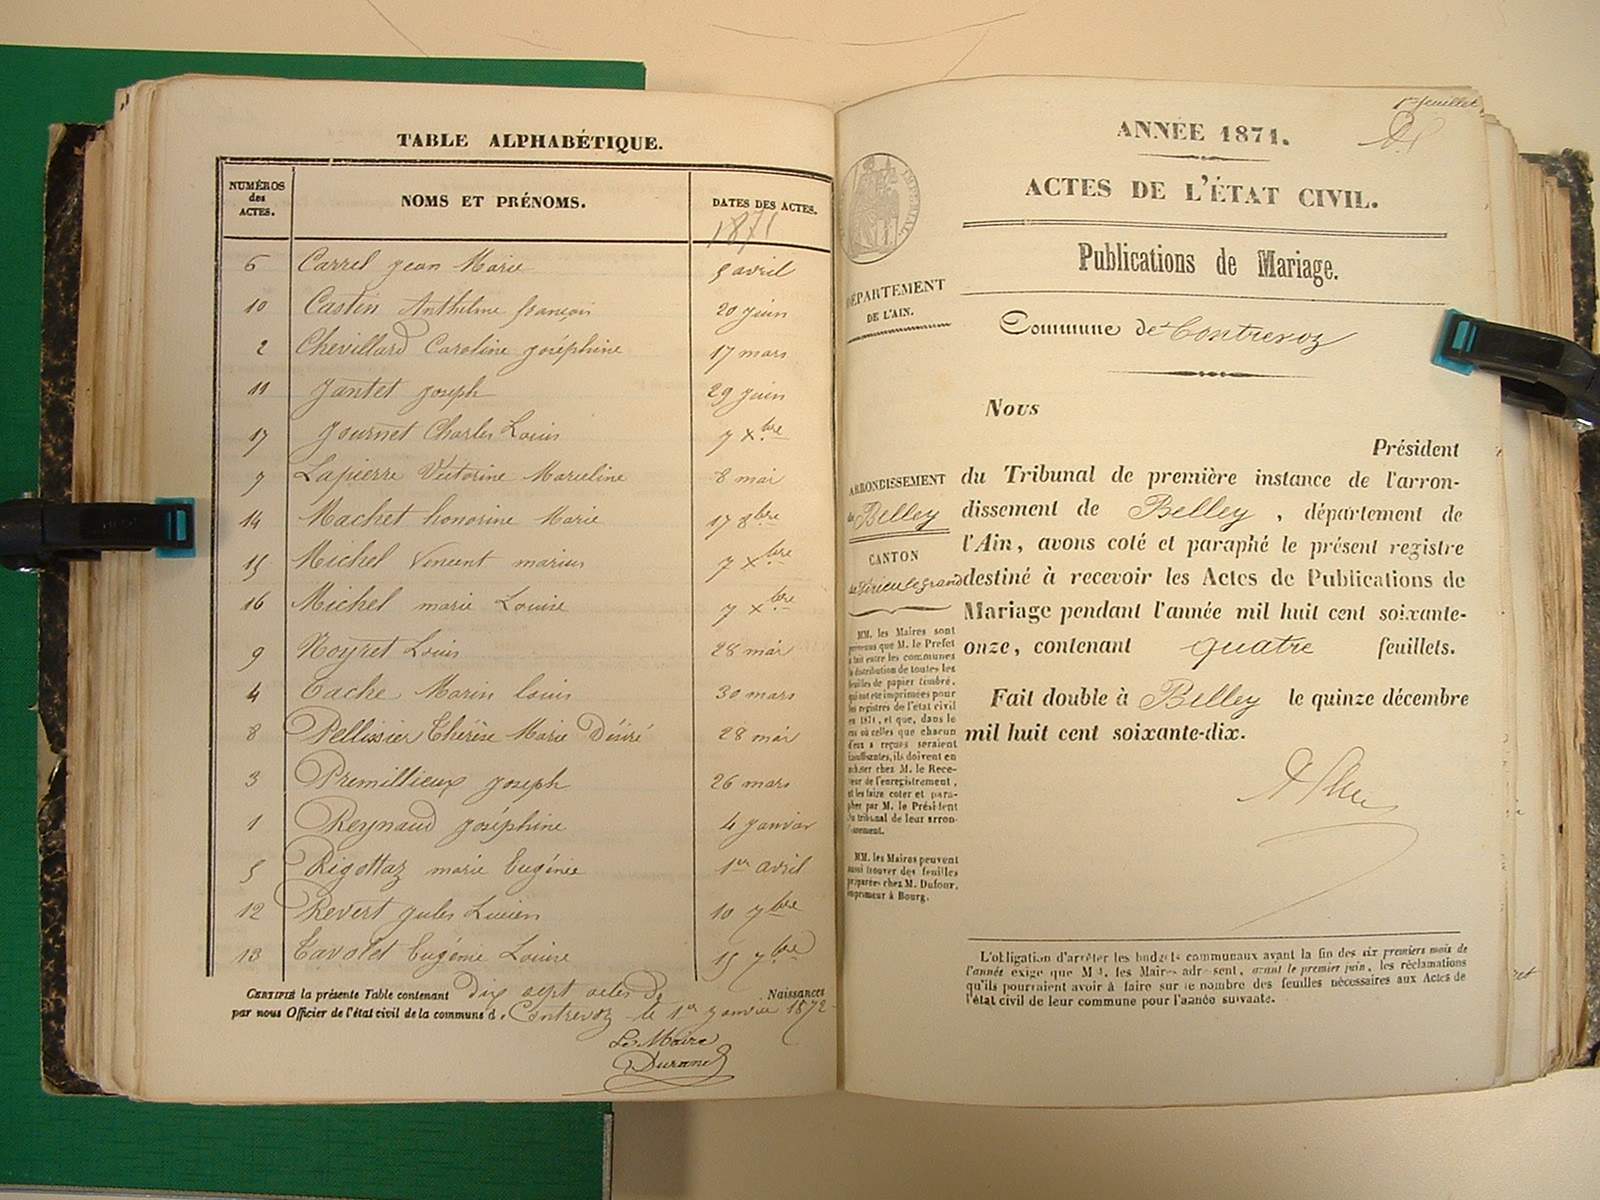 TABLE ALPHABÉTIQUE.
NUMÉROS des ACTES.
NOMS ET PRÉNOMS.
DATES DES ACTES.
1871
6 Carrel jean Marie 5 avril
10 Castin Anthelme françois 20 juin
2 Chevillard Caroline joséphine 17 mars
11 Jantet joseph 29 juin
17 Journet Charles Louis 7 Xbre
7 Lapierre Victorine Marceline 8 mai
14 Machet honorine Marie 17 8bre
15 Michel Vincent marius 7 Xbre
16 Michel marie Louise 7 Xbre
9 Noyret Louis 28 mai
4 Pache Marin louis 30 mars
8 Pellissier Thérèse Marie Désiré 28 mai
3 Premillieux joseph 26 mars
1 Reynaud joséphine 4 janvier
5 Rigottaz marie Eugénie 1er avril
12 Revert jules Lucien 10 7bre
13 Tavolet Eugénie Louise 15 7bre
CERTIFIÉ la présente Table contenant dix sept actes de Naissances
par nous Officier de l'état civil de la commune d. Contrevoz le 1er janvier 1872
Le Maire
Durand
1er feuillet
ANNÉE 1871.
ACTES DE L'ÉTAT CIVIL.
Publications de Mariage.
DÉPARTEMENT
DE L'AIN.
Commune de Contrevoz
Nous
Président
ARRONDISSEMENT
de Belley
CANTON
de Virieu le grand
du Tribunal de première instance de l'arron-
dissement de Belley, département de
l'Ain, avons coté et paraphé le présent registre
destiné à recevoir les Actes de Publications de
Mariage pendant l'année mil huit cent soixante-
onze, contenant quatre feuillets.
Fait double à Belley le quinze décembre
mil huit cent soixante-dix.
MM. les Maires sont
prévenus que M. le Préfet
a fait entre les communes
la distribution de toutes les
feuilles de papier timbré,
qui ont été imprimées pour
les registres de l'état civil
en 1871, et que, dans le
cas où celles que chacun
d'eux a reçues seraient
insuffisantes, ils doivent en
acheter chez M. le Rece-
veur de l'enregistrement,
et les faire coter et para-
pher par M. le Président
du tribunal de leur arron-
dissement.
MM. les Maires peuvent
aussi trouver des feuilles
préparées chez M. Dufour,
imprimeur à Bourg.
L'obligation d'arrêter les budgets communaux avant la fin des six premiers mois de
l'année exige que MM. les Maires adressent, avant le premier juin, les réclamations
qu'ils pourraient avoir à faire sur le nombre des feuilles nécessaires aux Actes de
l'état civil de leur commune pour l'année suivante.